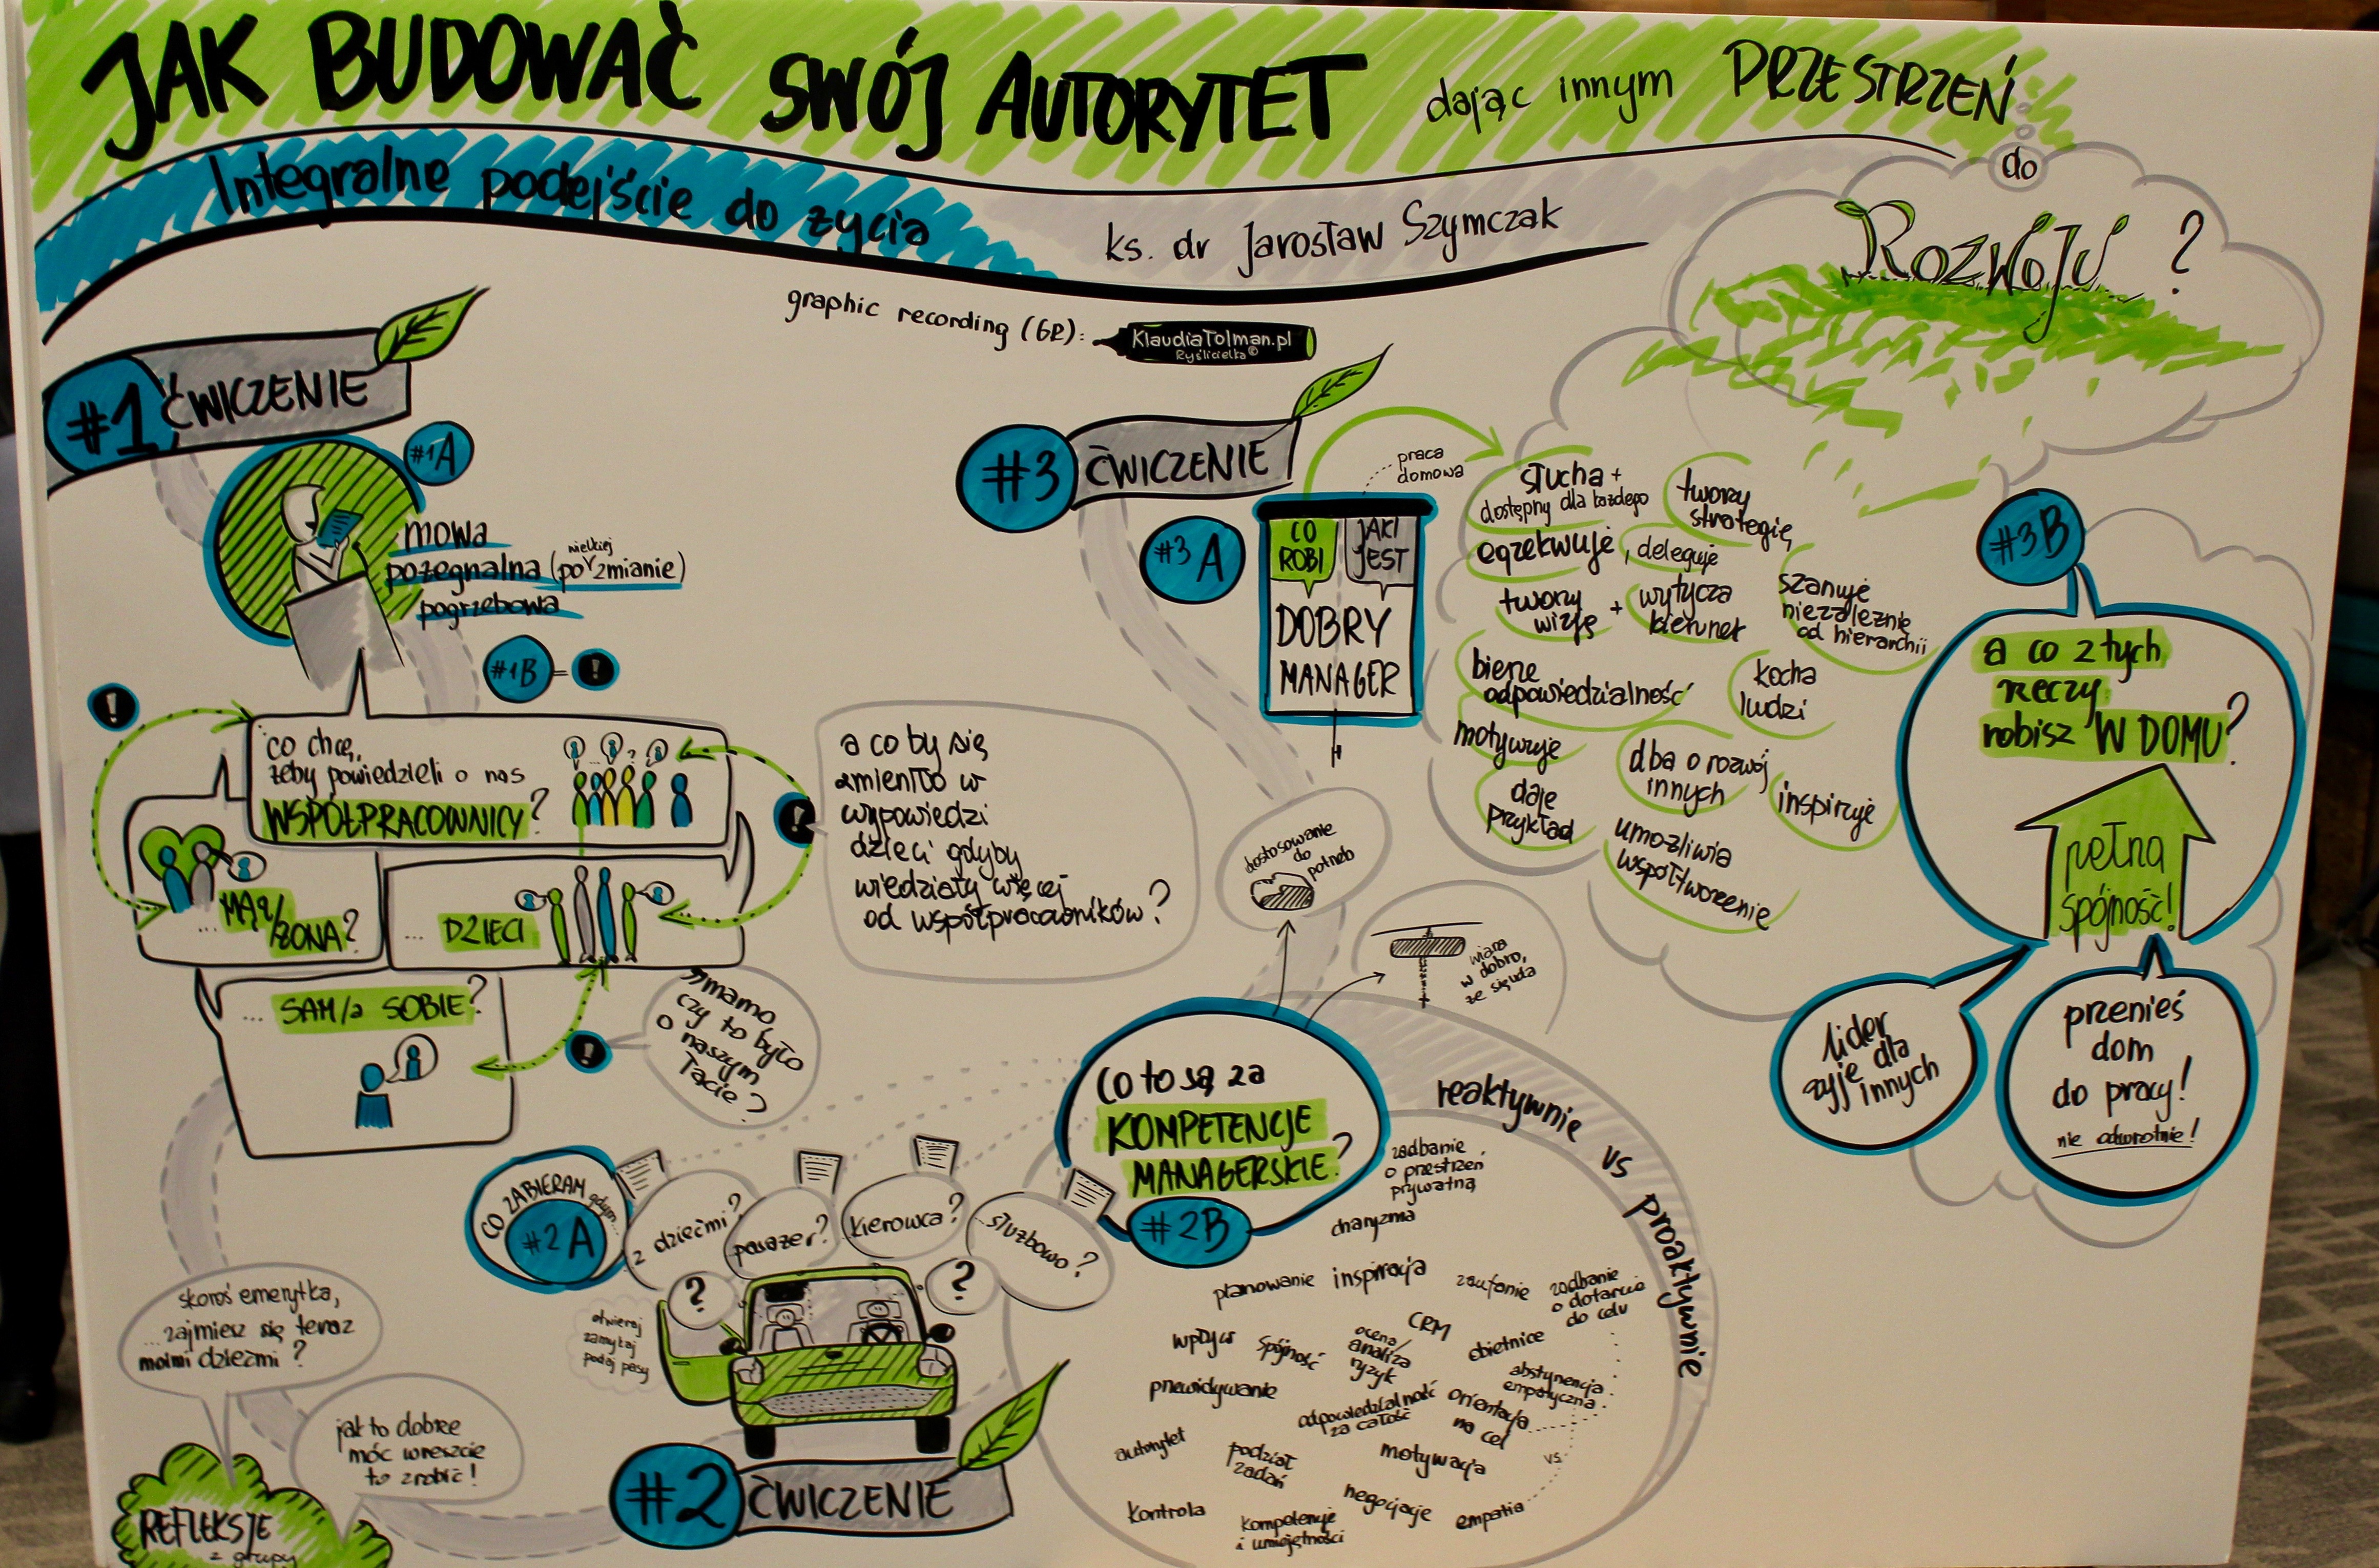 JAK BUDOWAĆ SWÓJ AUTORYTET dając innym PRZESTRZEŃ
do
ROZWOJU ?
Integralne podejście do życia
ks. dr Jarosław Szymczak
graphic recording (GR):
KlaudiaTolman.pl
Ryślicielka©
#1 ĆWICZENIE
#1A
mowa
pożegnalna (po wielkiej zmianie)
pogrzebowa
#1B = !
!
co chcę,
żeby powiedzieli o nas
WSPÓŁPRACOWNICY?
... MĄŻ/
ŻONA?
... DZIECI
!
a co by się
zmieniło w
wypowiedzi
dzieci gdyby
wiedziały więcej
od współpracowników?
... SAM/a SOBIE?
!
"mamo
czy to było
o naszym
Tacie?
#3 ĆWICZENIE
#3A
praca
domowa
CO
ROBI
JAKI
JEST
DOBRY
MANAGER
słucha +
dostępny dla każdego
tworzy
strategię
egzekwuje, deleguje
tworzy
wizję
+ wytycza
kierunek
szanuje
niezależnie
od hierarchii
bierze
odpowiedzialność
kocha
ludzi
motywuje
dba o rozwój
innych
daje
przykład
inspiruje
umożliwia
współtworzenie
#3B
a co z tych
rzeczy
robisz W DOMU?
pełna
spójność!
lider
żyje dla
innych
przenieś
dom
do pracy!
nie odwrotnie!
dostosowanie
do
potrzeb
wiara
w dobro,
że się uda
CO ZABIERAM gdym...
#2A
z dziećmi?
pasażer?
kierowca?
służbowo?
?
?
otwieraj
zamykaj
podaj pasy
#2 ĆWICZENIE
Co to są za
KOMPETENCJE
MANAGERSKIE?
#2B
reaktywnie vs proaktywnie
zadbanie
o przestrzeń
prywatną
charyzma
planowanie
inspiracja
zaufanie
zadbanie
o dotarcie
do celu
wpływ
spójność
ocena/
analiza
ryzyk
CRM
obietnice
przewidywanie
abstynencja
empatyczna
odpowiedzialność
za całość
orientacja
na cel
autorytet
podział
zadań
motywacja
vs
kontrola
kompetencje
i umiejętności
negocjacje
empatia
skoroś emerytka,
... zajmiesz się teraz
moimi dziećmi?
jak to dobrze
móc wreszcie
to zrobić!
REFLEKSJE
z grupy